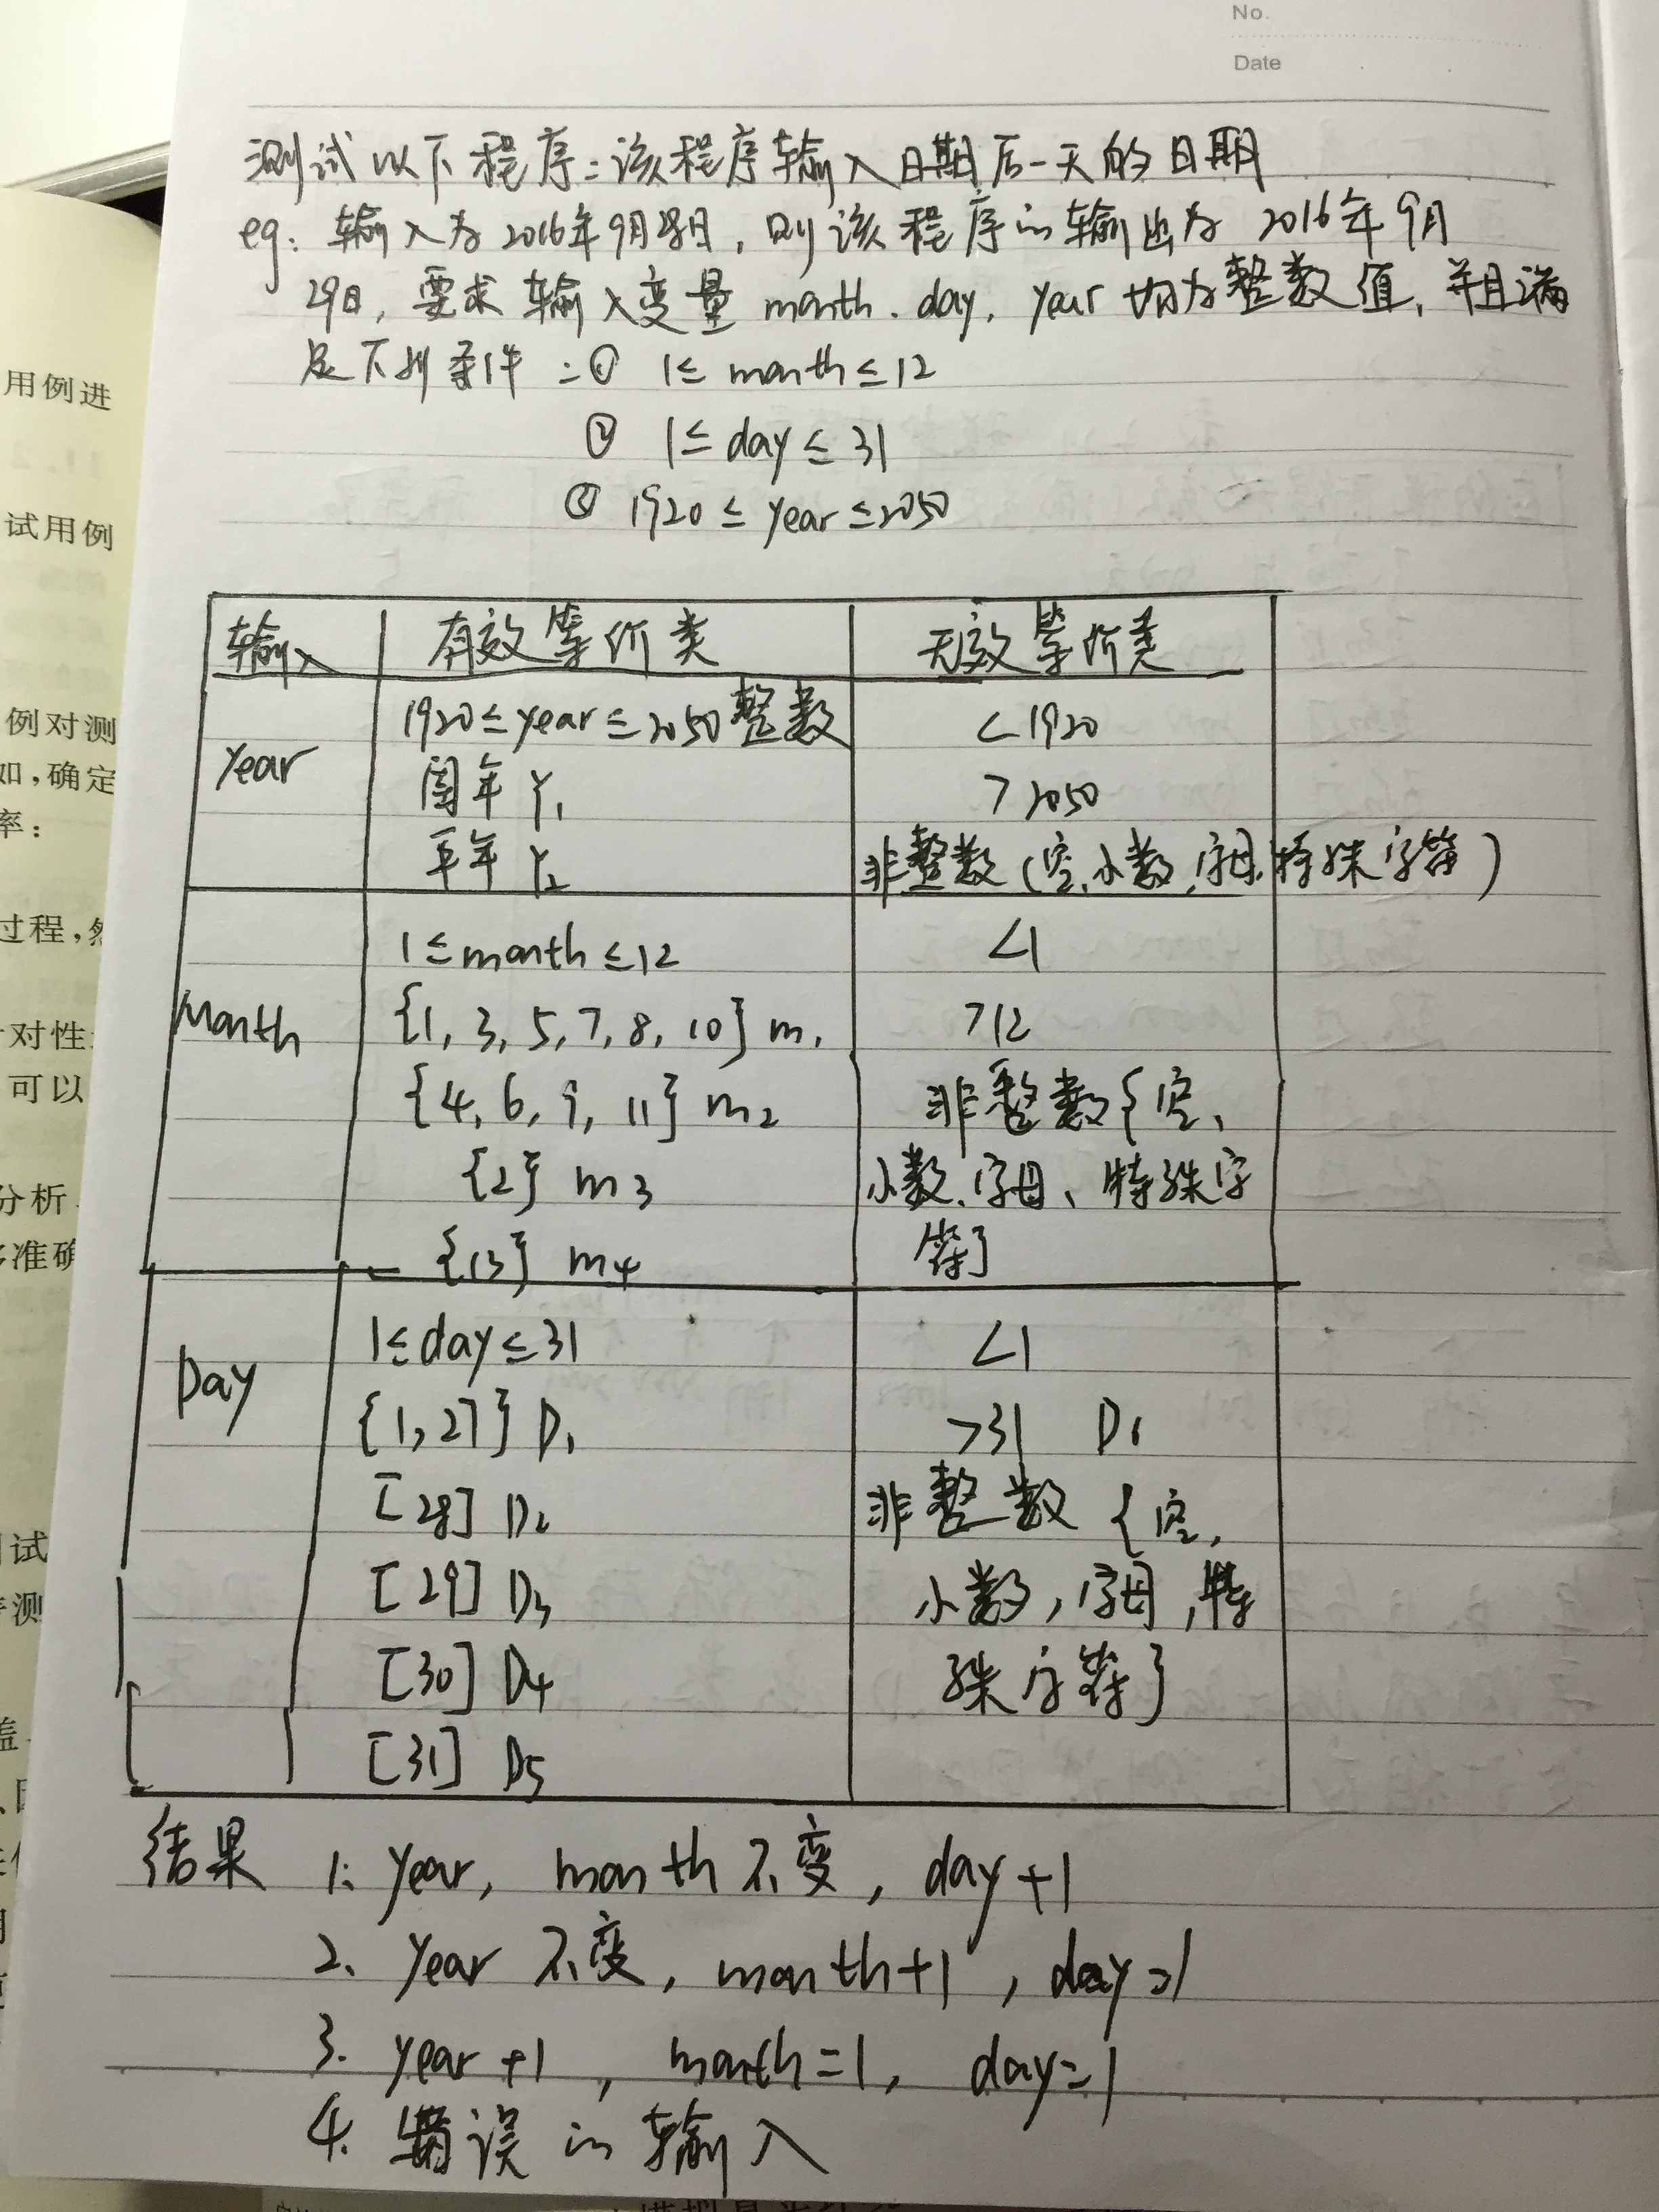 No.
Date
测试以下程序:该程序输入日期后一天的日期
eg: 输入为2016年9月28日,则该程序的输出为 2016年9月
29日,要求输入变量 month. day, year 均为整数值,并且满
足下列条件:① 1≤ month ≤12
② 1≤ day ≤ 31
③ 1920 ≤ year ≤2050
输入 有效等价类 无效等价类
year
1920≤year≤2050整数 <1920
闰年 Y1 >2050
平年 Y2 非整数(空、小数、字母、特殊字符)
Month
1≤month≤12 <1
{1, 3, 5, 7, 8, 10} m1 >12
{4, 6, 9, 11} m2 非整数{空、
{2} m3 小数、字母、特殊字
{13} m4 符}
Day
1≤day≤31 <1
{1,27} D1 >31 D6
[28] D2 非整数 {空,
[29] D3 小数,字母,特
[30] D4 殊字符}
[31] D5
结果 1: year, month 不变, day+1
2、year 不变, month+1, day=1
3. year+1, month=1, day=1
4. 错误的输入
用例进
试用例
例对测
如,确定
率:
过程,然
对性
可以
分析、
准确
试
测
盖